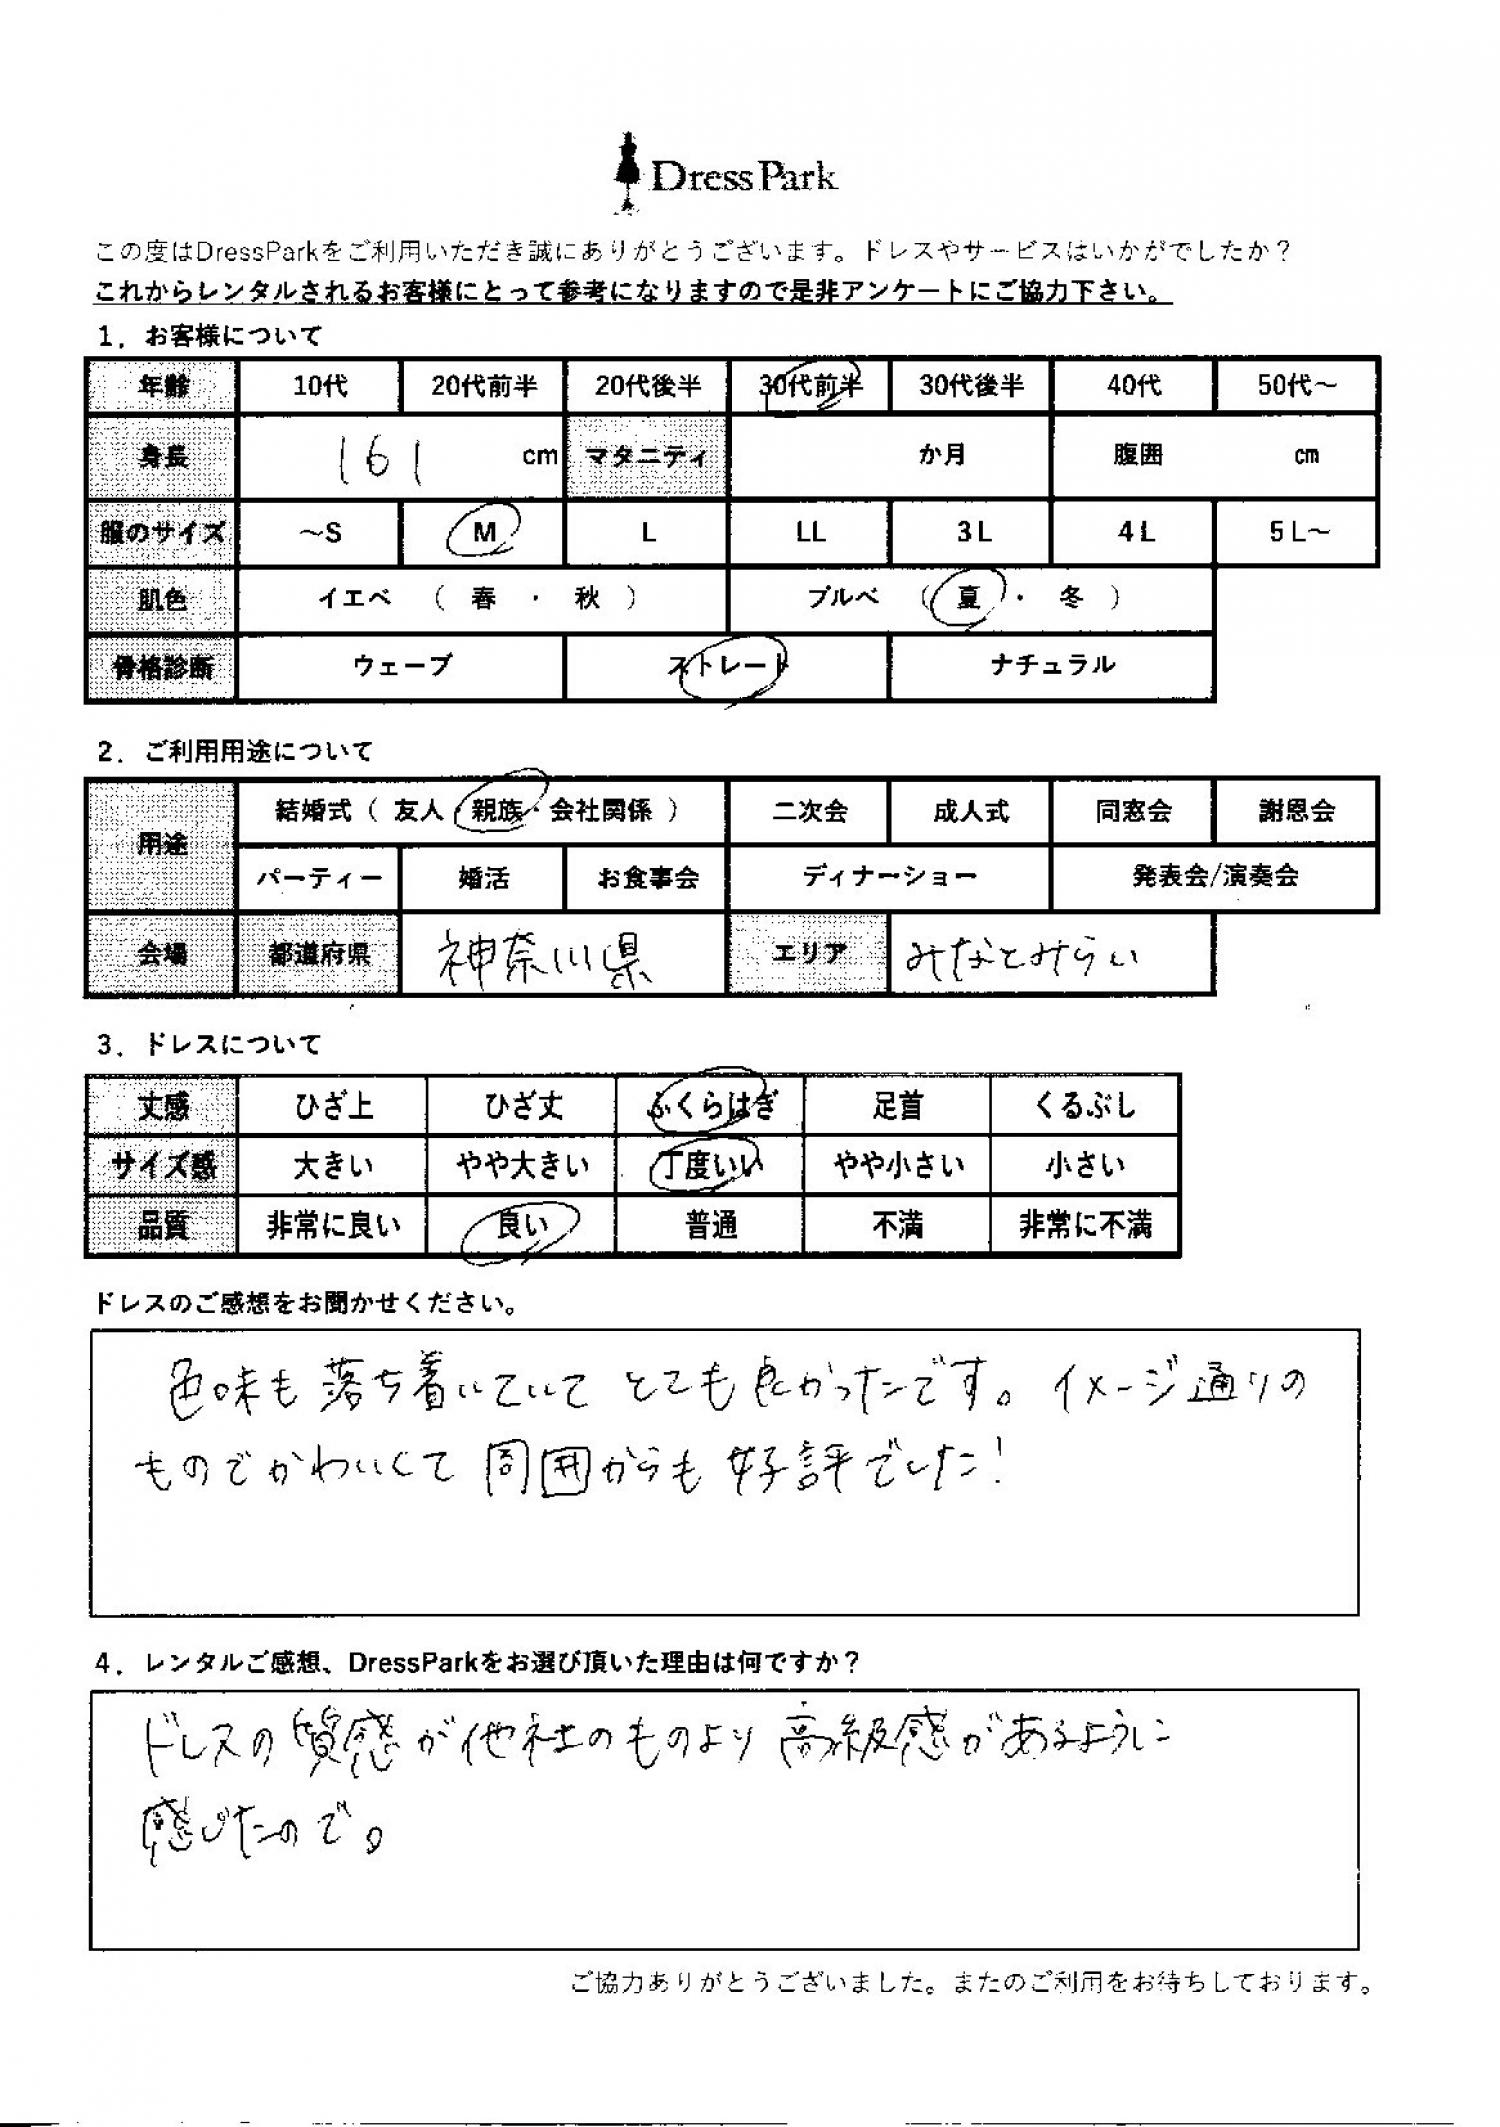 DressPark
この度はDressParkをご利用いただき誠にありがとうございます。ドレスやサービスはいかがでしたか？
これからレンタルされるお客様にとって参考になりますので是非アンケートにご協力下さい。
1．お客様について
年齢 10代 20代前半 20代後半 30代前半 30代後半 40代 50代～
身長 161 cm マタニティ か月 腹囲 cm
服のサイズ ～S M L LL 3L 4L 5L～
肌色 イエベ （ 春 ・ 秋 ） ブルベ （ 夏 ・ 冬 ）
骨格診断 ウェーブ ストレート ナチュラル
2．ご利用用途について
用途 結婚式（ 友人・親族・会社関係 ） 二次会 成人式 同窓会 謝恩会
パーティー 婚活 お食事会 ディナーショー 発表会/演奏会
会場 都道府県 神奈川県 エリア みなとみらい
3．ドレスについて
丈感 ひざ上 ひざ丈 ふくらはぎ 足首 くるぶし
サイズ感 大きい やや大きい 丁度いい やや小さい 小さい
品質 非常に良い 良い 普通 不満 非常に不満
ドレスのご感想をお聞かせください。
色味も落ち着いていてとても良かったです。イメージ通りの
ものでかわいくて周囲からも好評でした！
4．レンタルご感想、DressParkをお選び頂いた理由は何ですか？
ドレスの質感が他社のものより高級感があるように
感じたので。
ご協力ありがとうございました。またのご利用をお待ちしております。